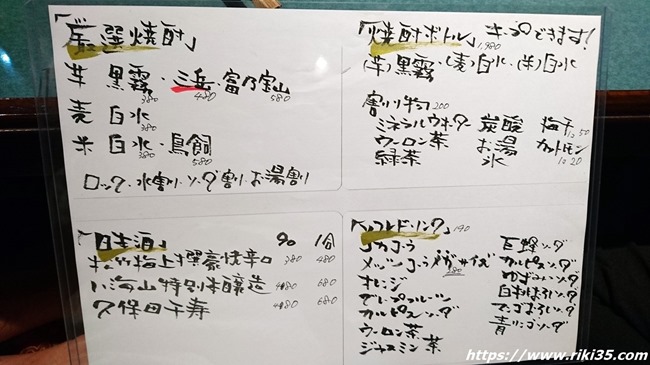 「厳選焼酎」
芋 黒霧・三岳・富乃宝山
380 480 580
麦 白水
380
米 白水・鳥飼
380 580
ロック・水割り・ソーダ割り・お湯割り
「焼酎ボトル」キープできます!
1,980
(芋)黒霧・(麦)白水・(米)白水
割り物 200
ミネラルウォーター 炭酸 梅干 1コ 50
ウーロン茶 お湯 カットレモン
緑茶 氷 1コ 20
「日本酒」 90 1合
松竹梅上撰豪快辛口 380 480
八海山特別本醸造 480 680
久保田千寿 480 680
「ソフトドリンク」190
コカコーラ
メッツコーラメガサイズ
380
オレンジ
グレープフルーツ
カルピスソーダ
ウーロン茶
ジャスミン茶
巨峰ソーダ
カルピスソーダ
ゆずみつソーダ
白桃ほろいソーダ
青リンゴソーダ
https://www.riki35.com